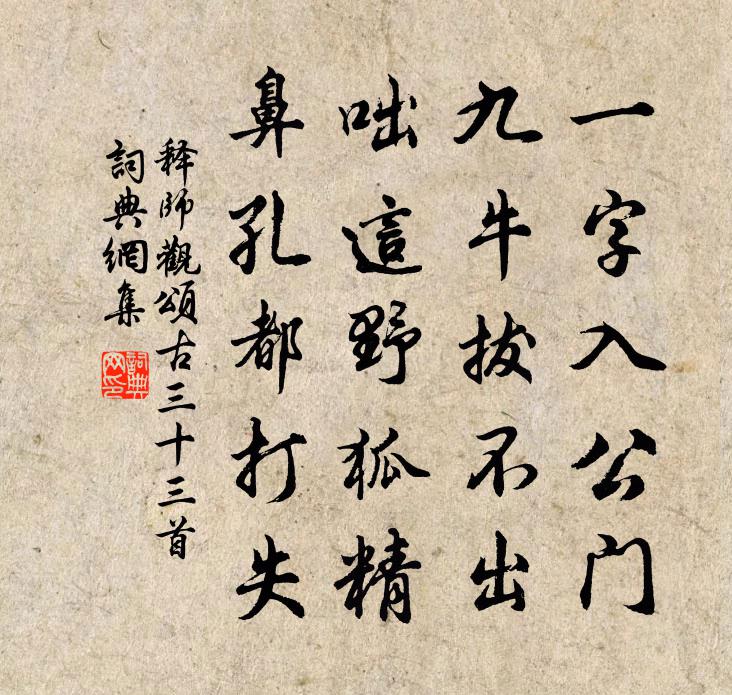 一字入公門
九牛拔不出
咄這野狐精
鼻孔都打失
释師觀頌古三十三首
詞典網集
詞典网印